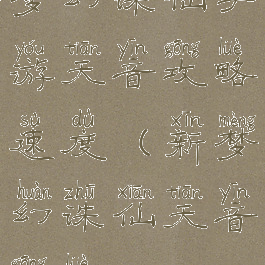 yóu tiān yīn gōng lüè
游天音攻略
sù dù xīn mèng
速度(新梦
huàn zhū xiān tiān yīn
幻诛仙天音
gōng lüè